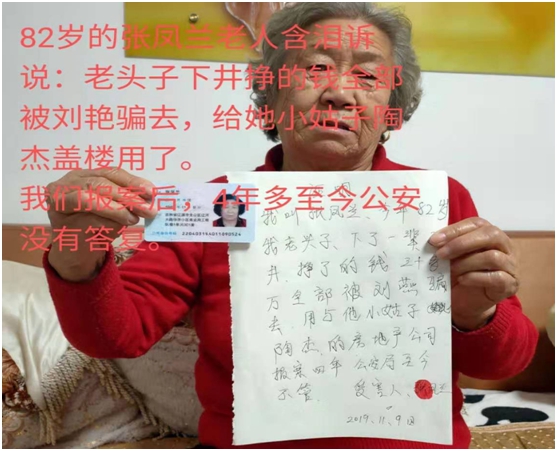 82岁的张凤兰老人含泪诉
说：老头子下井挣的钱全部
被刘艳骗去，给她小姑子陶
杰盖楼用了。
我们报案后，4年多至今公安
没有答复。
我叫张凤兰、今年82岁
我老头子、下了一辈
井、挣了的钱三十
万全部被刘燕骗
去、用与他小姑子
陶杰、的房地产公司
报案四年 公安局至今
不管、 受害人、
2019、11、9日